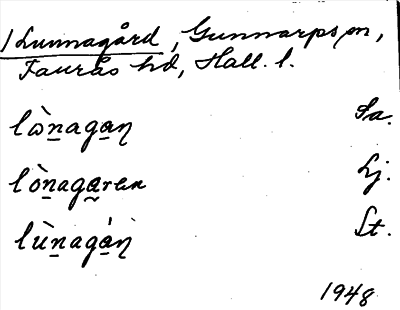 /Lunnagård, Gunnarps sn,
Faurås hd, Hall. l.
lὼn̲aga̲ɳ Sa.
lòn̲aga̰ren Lj.
lùn̲agá̲ɳ St.
1948